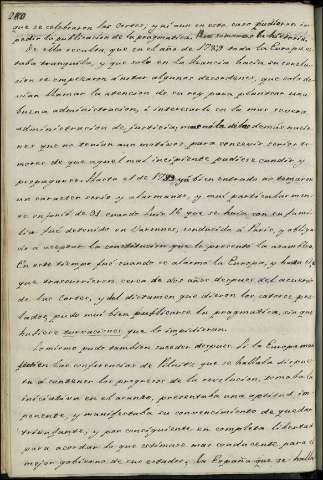 280
que se celebraron las Cortes, y ni aun en este caso pudieron im-
pedir la publicacion de la pragmatica.
De ello resulta que en el año de 1789 toda la Europa es-
taba tranquila, y que solo en la Francia hacia su revolu-
cion se empezaron á notar algunos desordenes, que solo de-
vian llamar la atencion de su rey para plantear una
buena administracion, é interesarle en la mas severa
administracion de justicia; mas no la de las demás nacio-
nes que no tenian aun motivos para concevir serios te-
mores de que aquel mal incipiente pudiese cundir, y
propagarse. Hasta el de 1793 ya bien entrado no tomaron
un caracter serio y alarmante, y mui particularmen-
te en junio de 91 cuando Luis 16 que se huía con su fami-
lia fué detenido en Varennes, conducido á Paris, y obliga-
do á aceptar la constitucion que le presentó la asamblea.
En este tiempo fué cuando se alarmó la Europa, y hasta él
que trascurrieron cerca de dos años despues del acuerdo
de las Cortes, y del dictamen que dieron los catorce pre-
lados, pudo mui bien publicarse la pragmatica, sin que
hubiese turvaciones que lo impidieran.
Lo mismo pudo tambien suceder despues. Si la Europa
en las conferencias de Pilnitz que se hallaba dispues-
ta á contener los progresos de la revolucion, tomaba la
iniciativa en el asunto, presentaba una aptitud im-
ponente, y manifestaba su convencimiento de quedar
triunfante, y por consiguiente en completa libertad
para acordar lo que estimase mas conducente para el
mejor gobierno de sus estados; la España que se halla